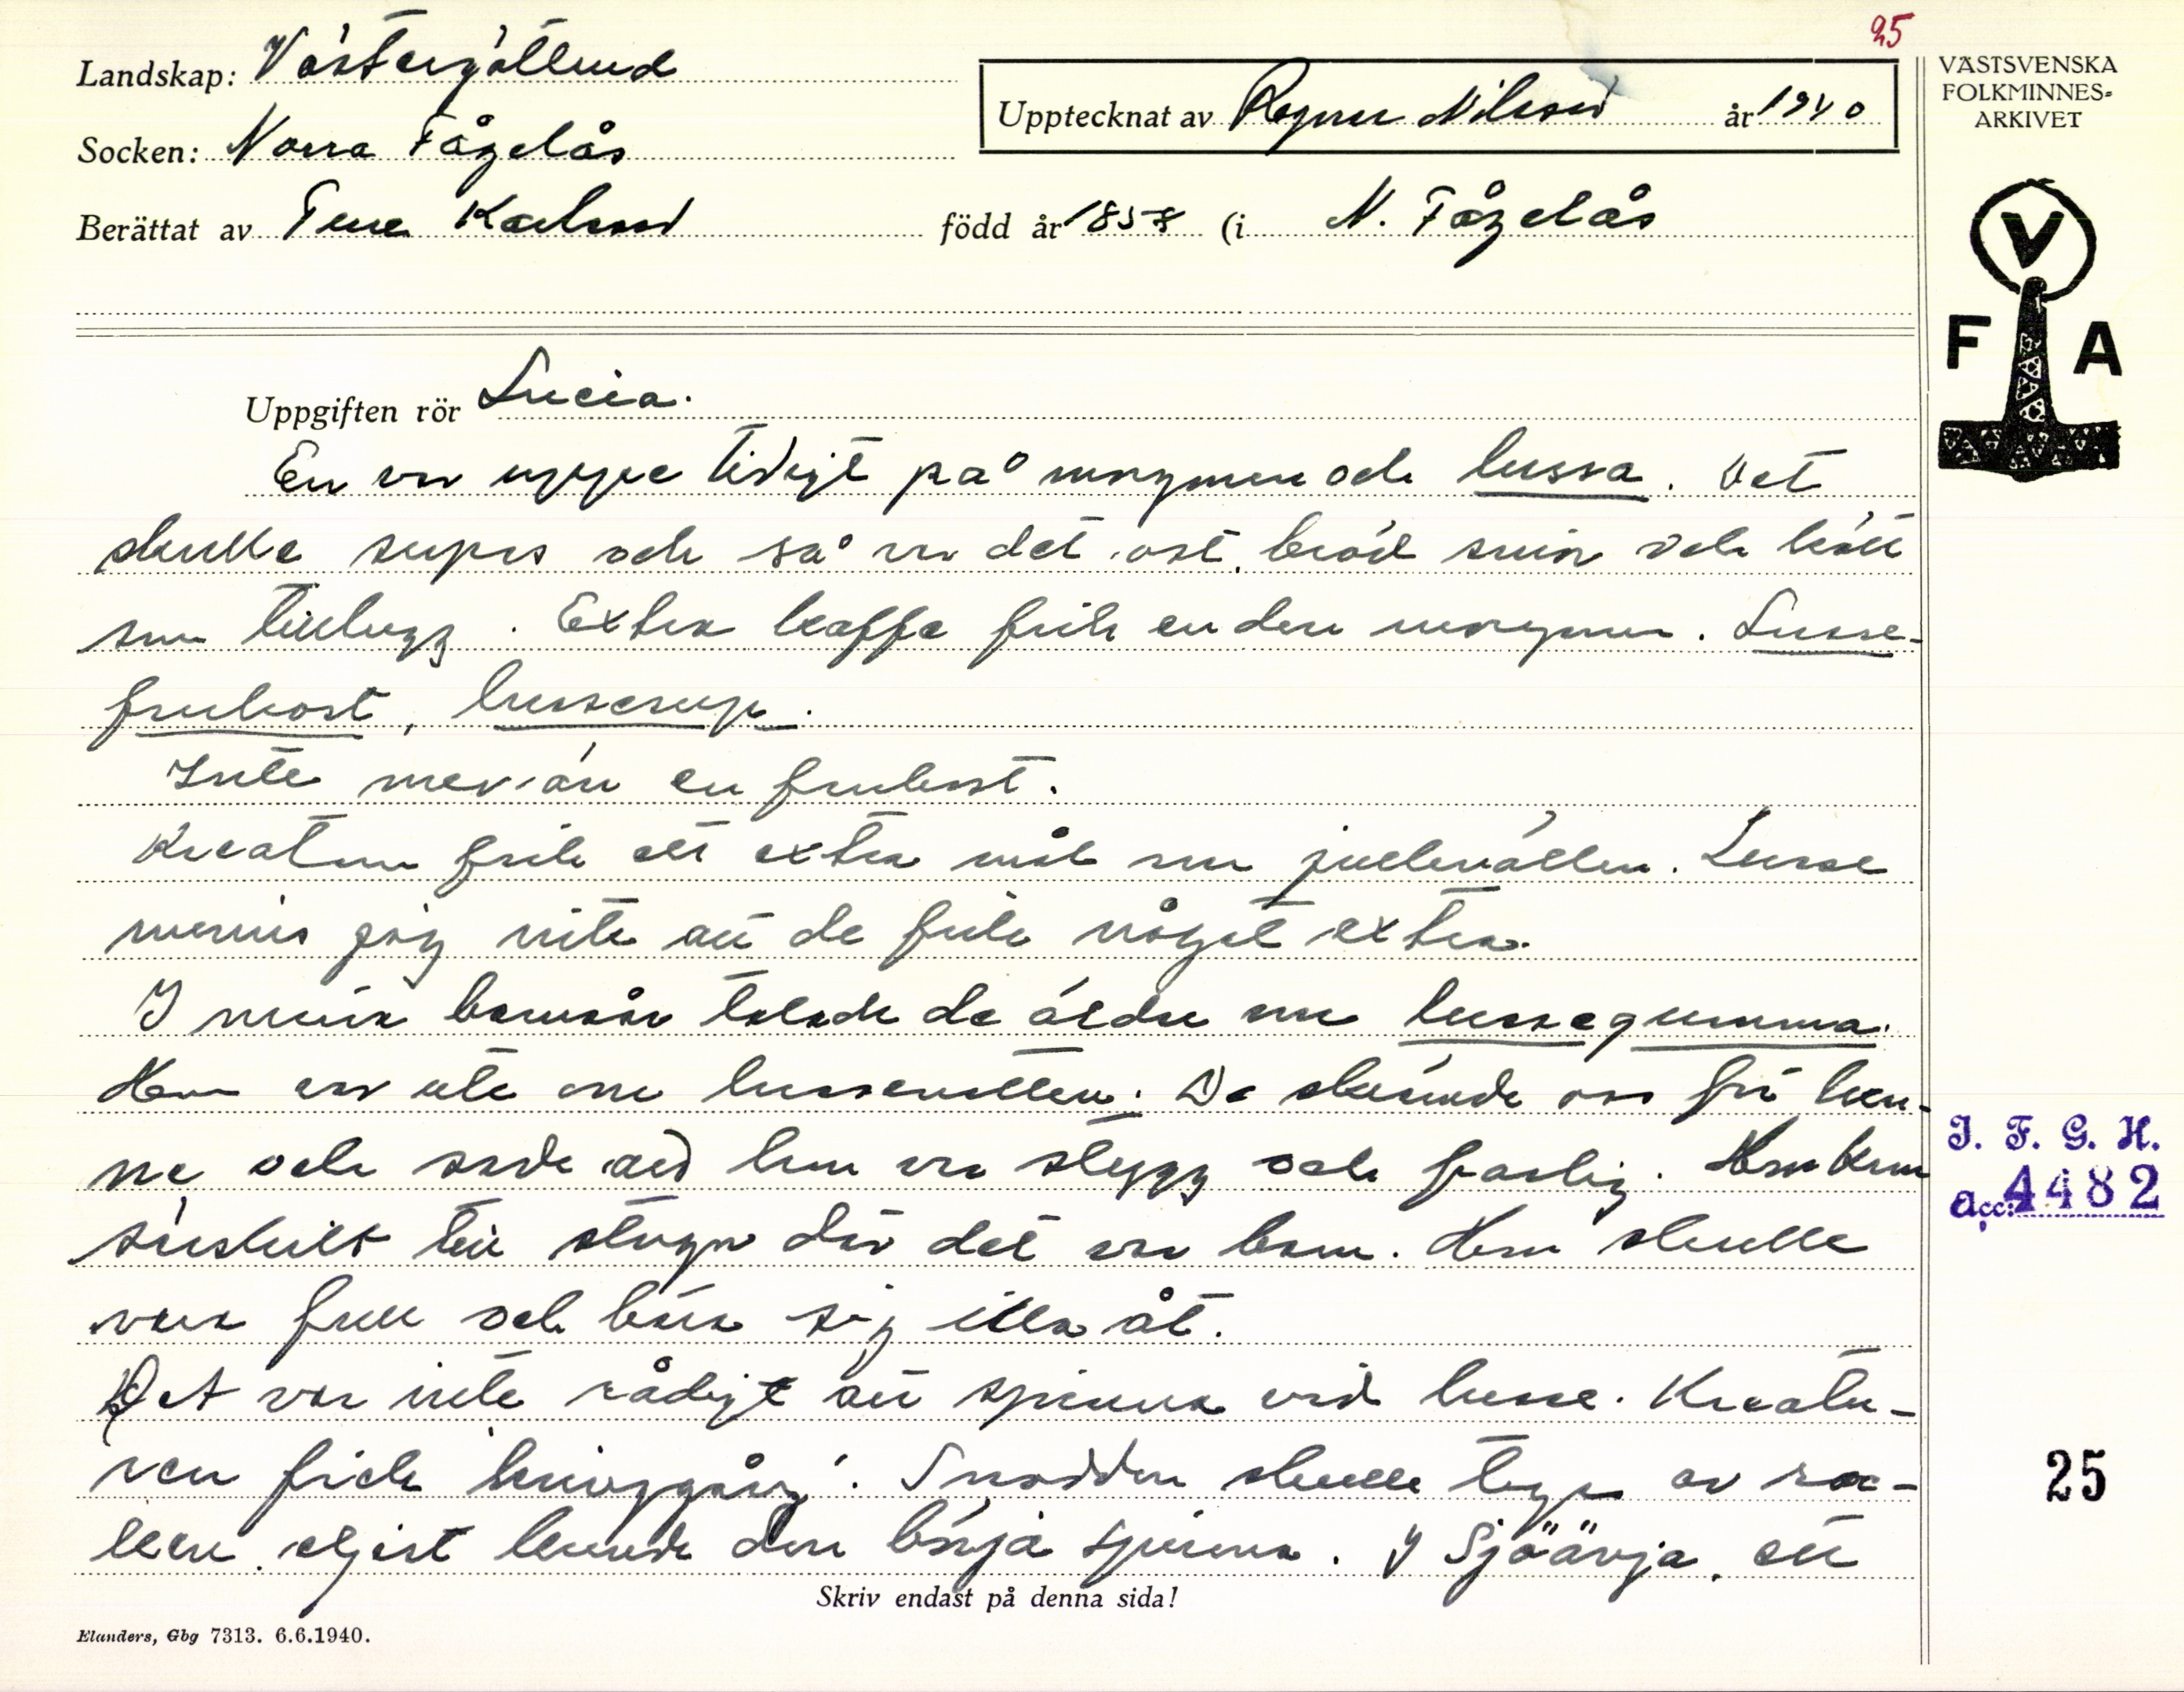 25
Landskap: Västergötland
Socken: Norra Fågelås
Upptecknat av Ragnar Nilsson år 1940
Berättat av Karlsson född år 1858 (i N. Fågelås
VÄSTSVENSKA
FOLKMINNES-
ARKIVET
V
F A
Uppgiften rör Lucia.
En var uppe tidigt på morgonen och lussa. Det
skulle supas och så var det ost, bröd smör och kött
som tilltugg. Extra kaffe fick en den morgonen. Lusse-
frukost, lussesup.
Inte mer än en frukost.
Kreaturen fick ett extra mål om julkvällen. Lusse
minns jag inte att de fick något extra.
I mina barnaår talade de äldre om lussegumma.
Hon var ute om lussenatten. De skrämde oss för hen-
ne och sade att hon var stygg och farlig. Hon kom
särskilt till stugor där det var barn. Hon skulle
vara full och bära sig illa åt.
Det var inte rådigt att spinna vid lusse. Kreatu-
ren fick 'kringgång'. Snodden skulle tagas av roc-
ken eljest kunde den börja spinna. I Sjöävja, ett
I. F. G. H.
Acc: 4482
25
Skriv endast på denna sida!
Elanders, Gbg 7313. 6.6.1940.